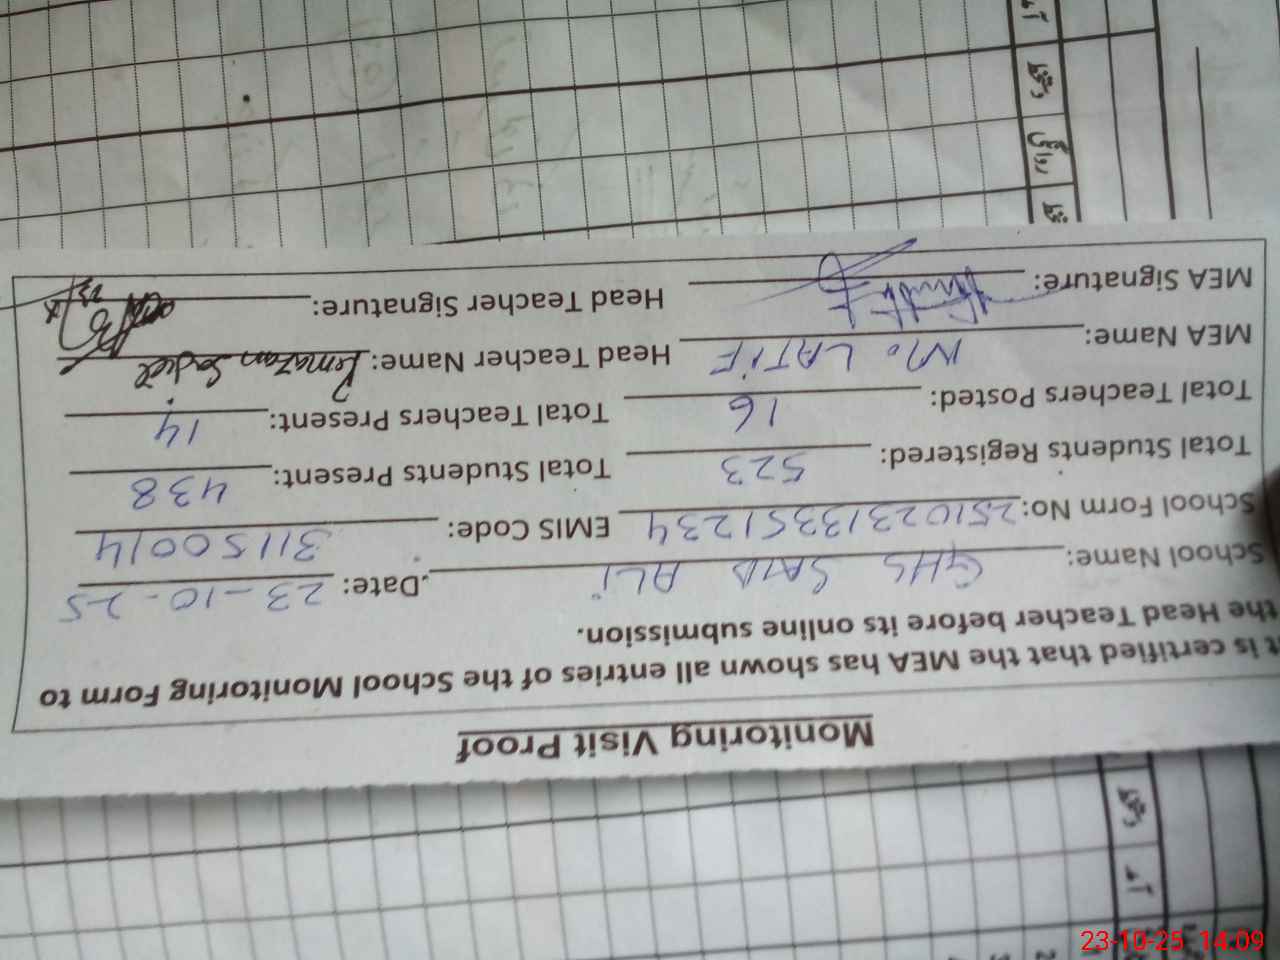 Monitoring Visit Proof
t is certified that the MEA has shown all entries of the School Monitoring Form to
the Head Teacher before its online submission.
School Name: GHS SAID ALI Date: 23-10-25
School Form No: 25102313351234 EMIS Code: 31150014
Total Students Registered: 523 Total Students Present: 438
Total Teachers Posted: 16 Total Teachers Present: 14
MEA Name: M. LATIF Head Teacher Name: Ramazan Sadiq
MEA Signature: Head Teacher Signature:
آمد
دستخط
روانگی
دستخط
دستخط
آمد
23-10-25 14:09